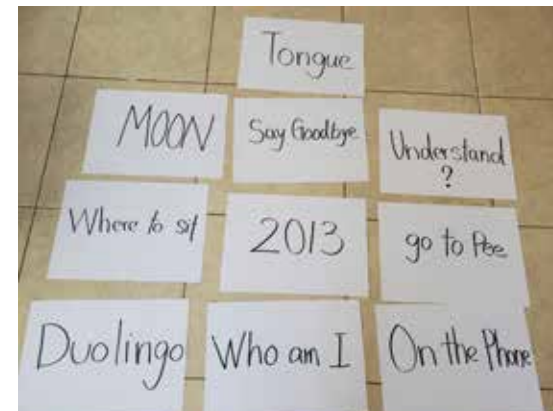 Tongue
MOON
Say Goodbye
Understand
?
Where to sit
2013
go to Pee
Duolingo
Who am I
On the Phone